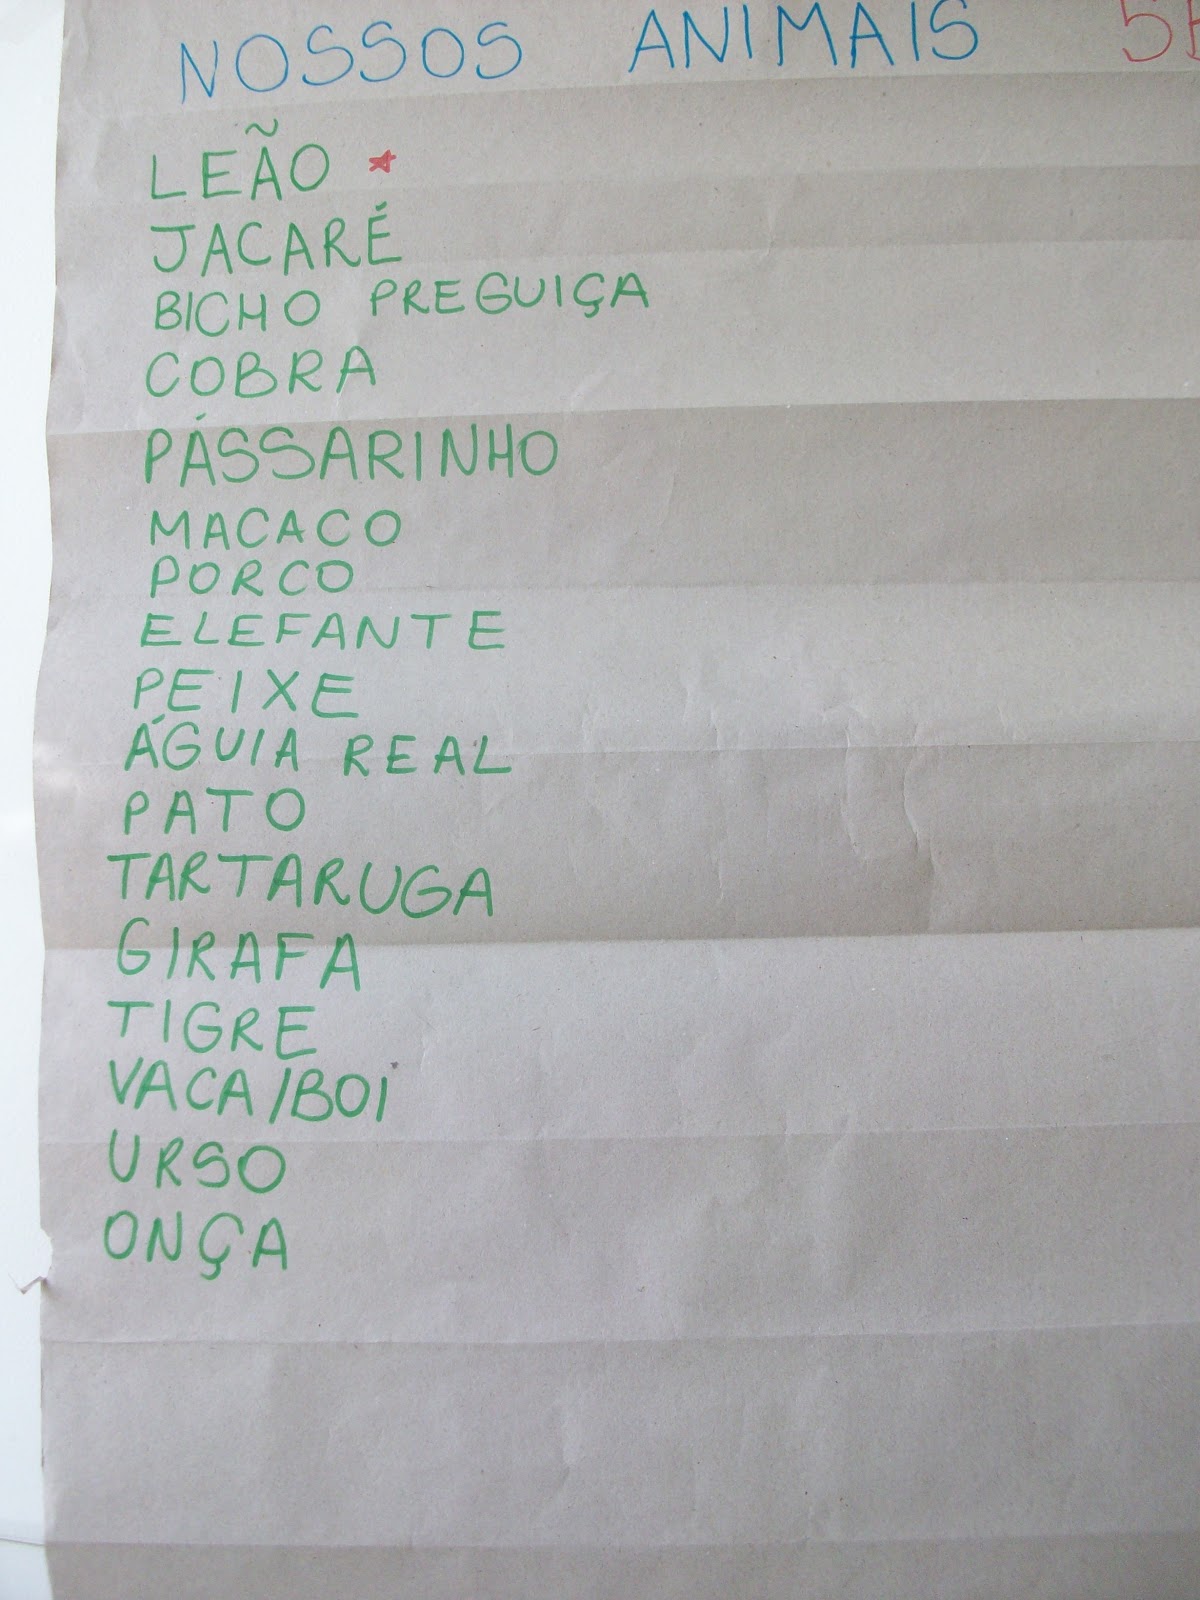 NOSSOS ANIMAIS
LEÃO
JACARÉ
BICHO PREGUIÇA
COBRA
PÁSSARINHO
MACACO
PORCO
ELEFANTE
PEIXE
ÁGUIA REAL
PATO
TARTARUGA
GIRAFA
TIGRE
VACA/BOI
URSO
ONÇA